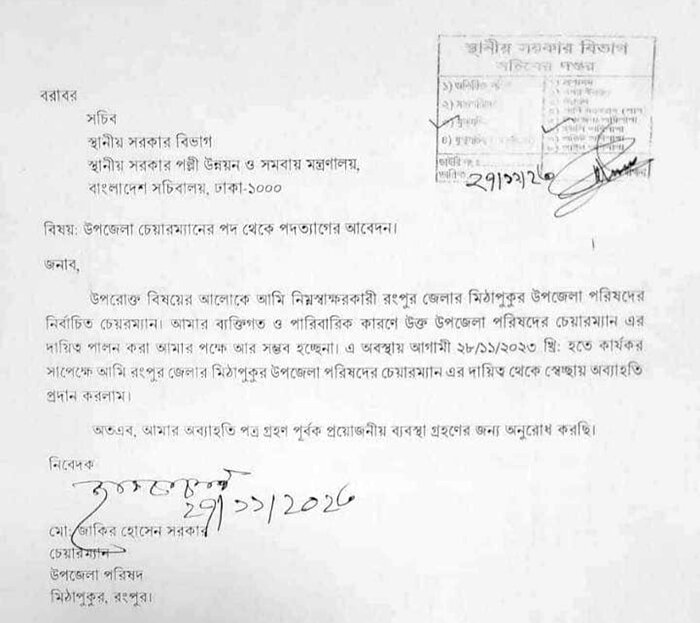 স্থানীয় সরকার বিভাগ
সচিবের দপ্তর
বরাবর
সচিব
স্থানীয় সরকার বিভাগ
স্থানীয় সরকার পল্লী উন্নয়ন ও সমবায় মন্ত্রণালয়,
বাংলাদেশ সচিবালয়, ঢাকা-১০০০
২৭/১১/২৩
বিষয়: উপজেলা চেয়ারম্যানের পদ থেকে পদত্যাগের আবেদন।
জনাব,
উপরোক্ত বিষয়ের আলোকে আমি নিম্নস্বাক্ষরকারী রংপুর জেলার মিঠাপুকুর উপজেলা পরিষদের
নির্বাচিত চেয়রম্যান। আমার ব্যক্তিগত ও পারিবারিক কারণে উক্ত উপজেলা পরিষদের চেয়ারম্যান এর
দায়িত্ব পালন করা আমার পক্ষে আর সম্ভব হচ্ছেনা। এ অবস্থায় আগামী ২৮/১১/২০২৩ খ্রি: হতে কার্যকর
সাপেক্ষে আমি রংপুর জেলার মিঠাপুকুর উপজেলা পরিষদের চেয়ারম্যান এর দায়িত্ব থেকে স্বেচ্ছায় অব্যাহতি
প্রদান করলাম।
অতএব, আমার অব্যাহতি পত্র গ্রহণ পূর্বক প্রয়োজনীয় ব্যবস্থা গ্রহণের জন্য অনুরোধ করছি।
নিবেদক
২৭/১১/২০২৩
মো: জাকির হোসেন সরকার
চেয়ারম্যান
উপজেলা পরিষদ
মিঠাপুকুর, রংপুর।